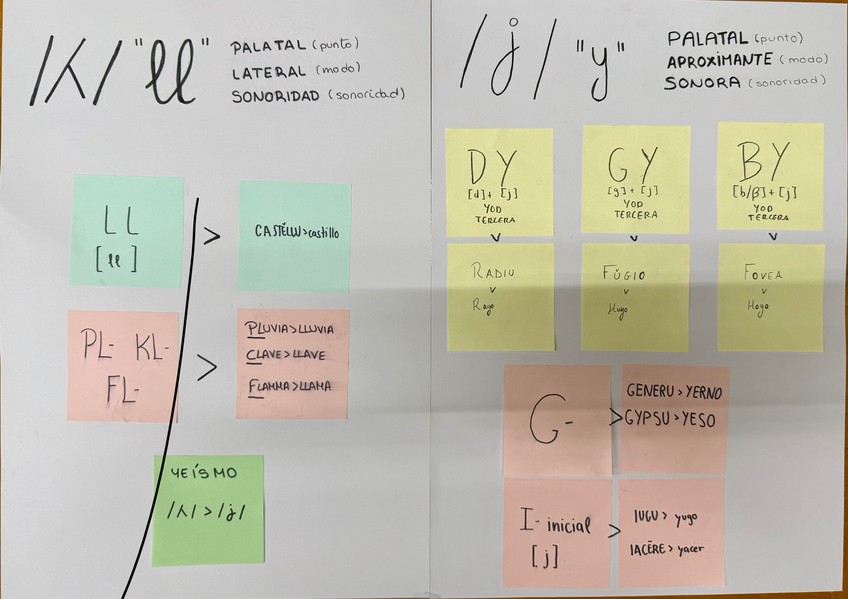 /ʎ/ "ll" PALATAL (punto)
LATERAL (modo)
SONORIDAD (sonoridad)
LL
[ll]
>
CASTĔLLU>castillo
PL- KL-
FL-
>
PLUVIA>LLUVIA
CLAVE>LLAVE
FLAMMA>LLAMA
YEÍSMO
/ʎ/>/j/
/j/ "y" PALATAL (punto)
APROXIMANTE (modo)
SONORA (sonoridad)
DY
[d]+ [j]
YOD
TERCERA
v
RADIU
v
Rayo
GY
[g]+ [j]
YOD
TERCERA
v
FŬGIO
v
Huyo
BY
[b/β]+[j]
YOD
TERCERA
v
FOVEA
v
Hoyo
G-
>
GENERU>YERNO
GYPSU>YESO
I- inicial
[j]
>
IUGU> yugo
IACĒRE> yacer